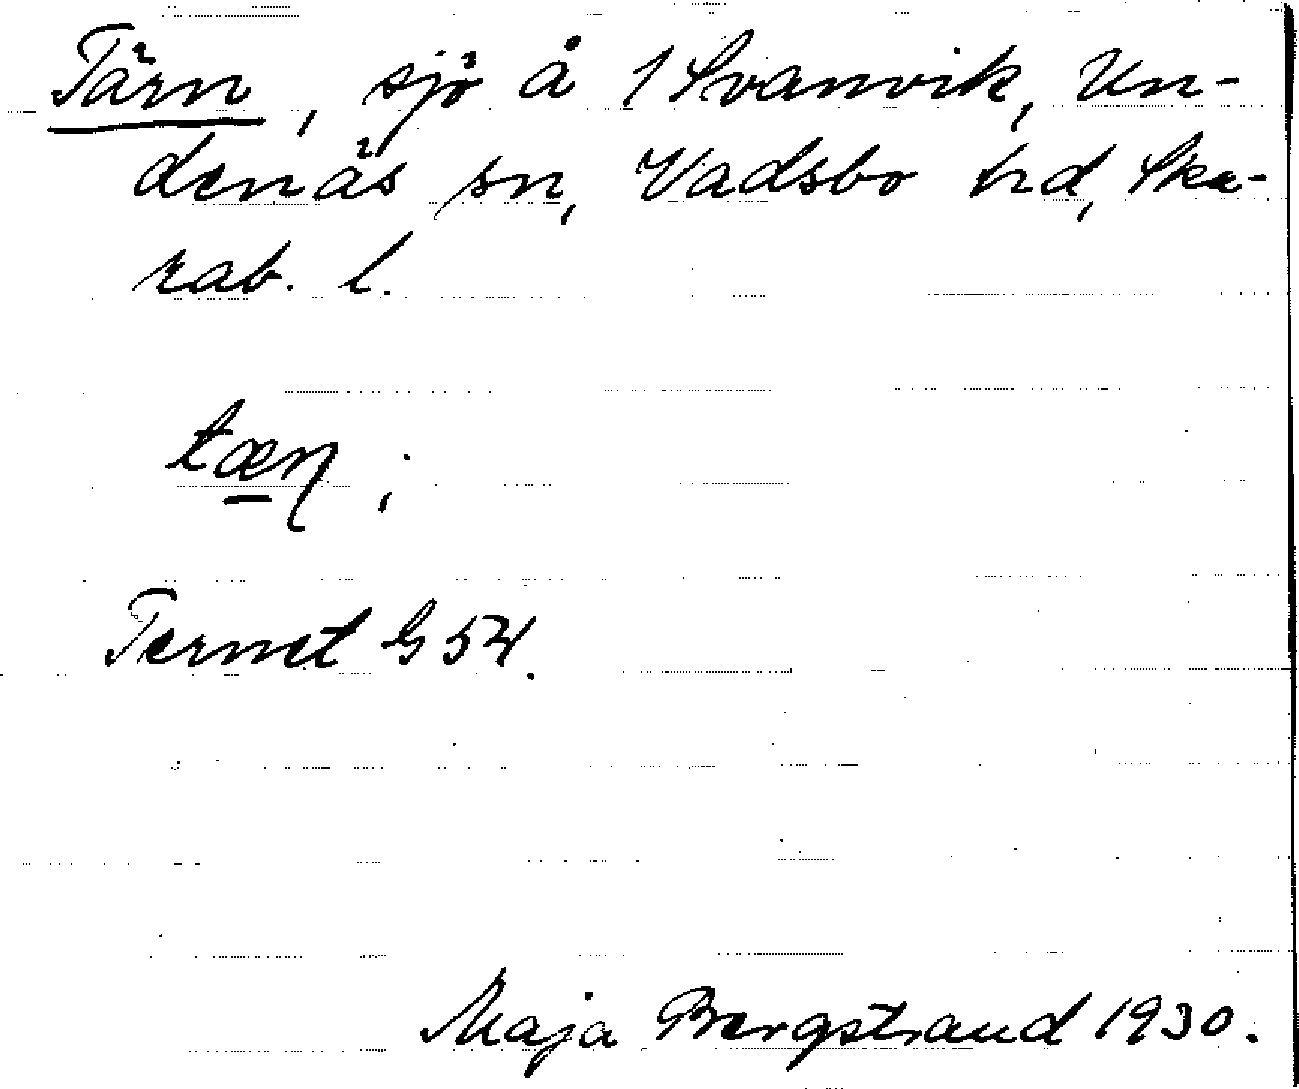 Tärn, sjö å 1 Svanvik, Un-
denäs sn, Vadsbo hd, Ska-
rab. l.
tæn,
Ternet G 54.
Maja Bergstrand 1930.